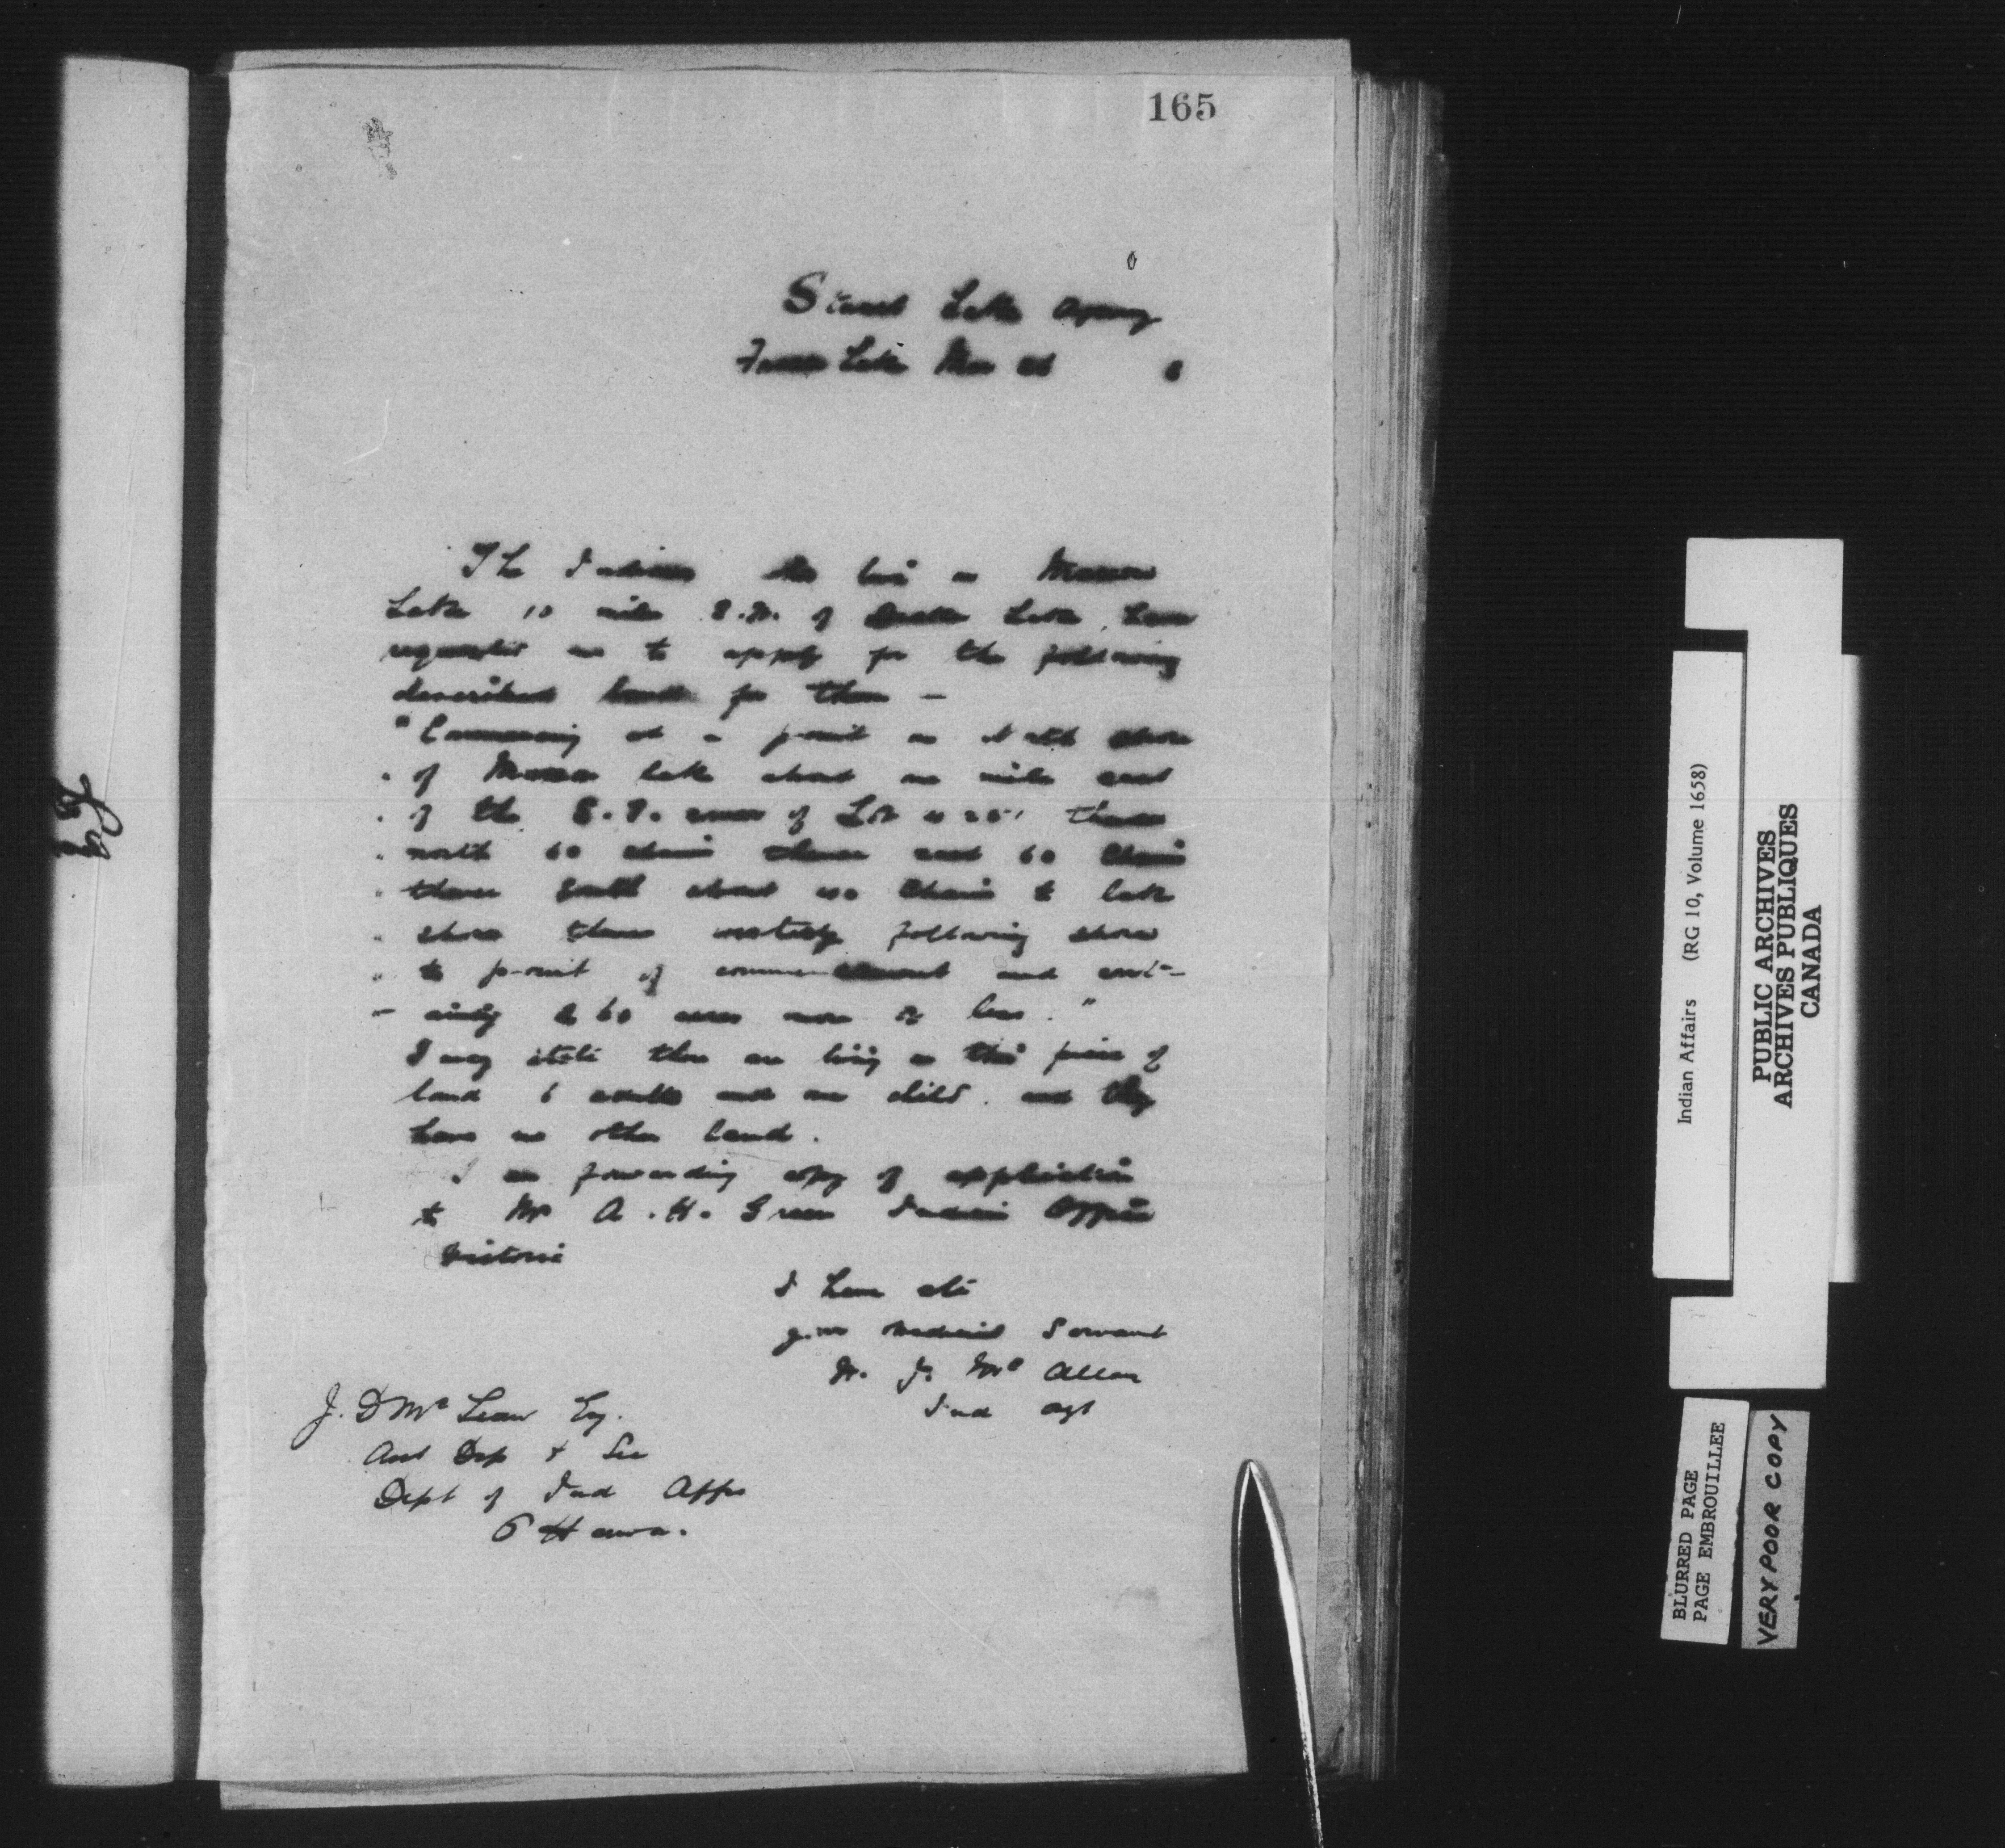 165
Stuart Lake Agency
Fraser Lake Mar
The Indians who live on
Lake 10 miles S.W. of Lake have
requested me to apply for the following
described lands for them —
"Commencing at a point on North shore
" of lake about one mile east
" of the S.E. corner of Lot thence
" north 60 chains thence east 60 chains
" thence South about chains to lake
" shore thence westerly following shore
" to point of commencement and
60 acres more or less."
I may state there are living on this piece of
land 6 adults and one child and they
have no other land.
I am forwarding copy of application
to Mr A. H. Green Indian Office
Victoria
I have etc
your obedient Servant
W. J. McAllan
Ind Agt
J. D McLean Esq.
Asst Dep & Sec
Dept of Ind Affrs
Ottawa.
Indian Affairs (RG 10, Volume 1658)
PUBLIC ARCHIVES
ARCHIVES PUBLIQUES
CANADA
BLURRED PAGE
PAGE EMBROUILLEE
VERY POOR COPY